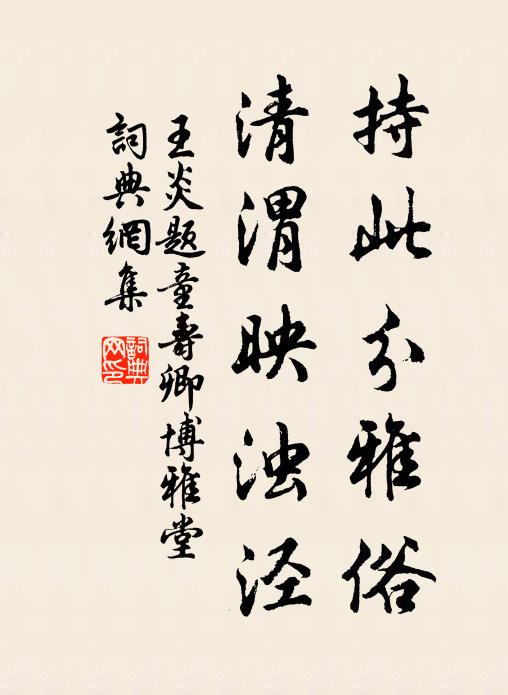 持此分雅俗
清渭映浊泾
王炎题童寿卿博雅堂
詞典網集
詞典网印